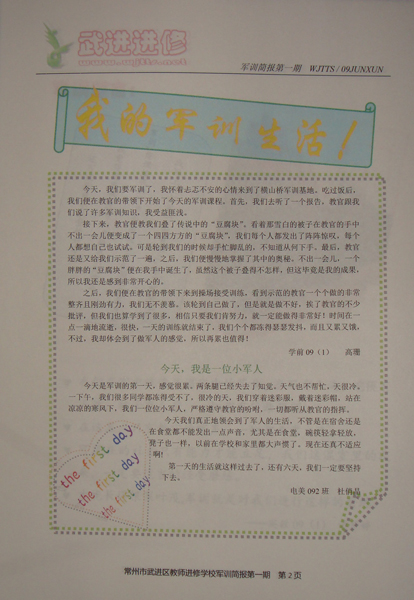 武进进修
www.wjtts.net
军训简报第一期 WJTTS / 09JUNXUN
我的军训生活！
今天，我们要军训了，我怀着忐忑不安的心情来到了横山桥军训基地。吃过饭后，
我们便在教官的带领下开始了今天的军训课程。首先，我们去听了一个报告，教官跟我
们说了许多军训知识，我受益匪浅。
接下来，教官便教我们叠了传说中的“豆腐块”，看着那雪白的被子在教官的手中
不出一会儿便变成了一个四四方方的“豆腐块”，我们每个人都发出了阵阵惊叹，每个
人都想自己也试试，可是轮到我们的时候却手忙脚乱的，不知道从何下手。最后，教官
还是又给我们示范了一遍。之后，我们便慢慢地掌握了其中的奥秘。不出一会儿，一个
胖胖的“豆腐块”便在我手中诞生了，虽然这个被子叠得不怎样，但这毕竟是我的成果，
所以我还是感到非常开心的。
之后，我们便在教官的带领下来到操场接受训练，看到示范的教官一个个做的非常
整齐且刚劲有力，我们无不羡慕。该轮到自己做了，但是就是做不好，挨了教官的不少
批评，但我们也算学到了很多。相信只要我们肯努力，就一定能做得非常好！时间在一
点一滴地流逝，很快，一天的训练就结束了，我们个个都冻得瑟瑟发抖，而且又累又饿，
不过，我却体会到了做军人的感觉，所以再累也值得！
学前 09（1） 高珊
今天，我是一位小军人
今天是军训的第一天，感觉很累，两条腿已经失去了知觉。天气也不帮忙，天很冷。
一下午，我们很多同学都冻得受不了。很冷的天，我们穿着迷彩服，戴着迷彩帽，站在
凉凉的寒风下，我们一位位小军人，严格遵守教官的吩咐，一切都听从教官的指挥。
今天我们真正地领会到了军人的生活，不管是在宿舍还是
在食堂都不能发出一点声音，尤其是在食堂，碗筷轻拿轻放，
凳子也一样，以前在学校和家里都大声惯了，现在还真不适应
啊！
第一天的生活就这样过去了，还有六天，我们一定要坚持
下去。
电美 092 班 杜俏晶
the first day
the first day
the first day
常州市武进区教师进修学校军训简报第一期 第 2 页